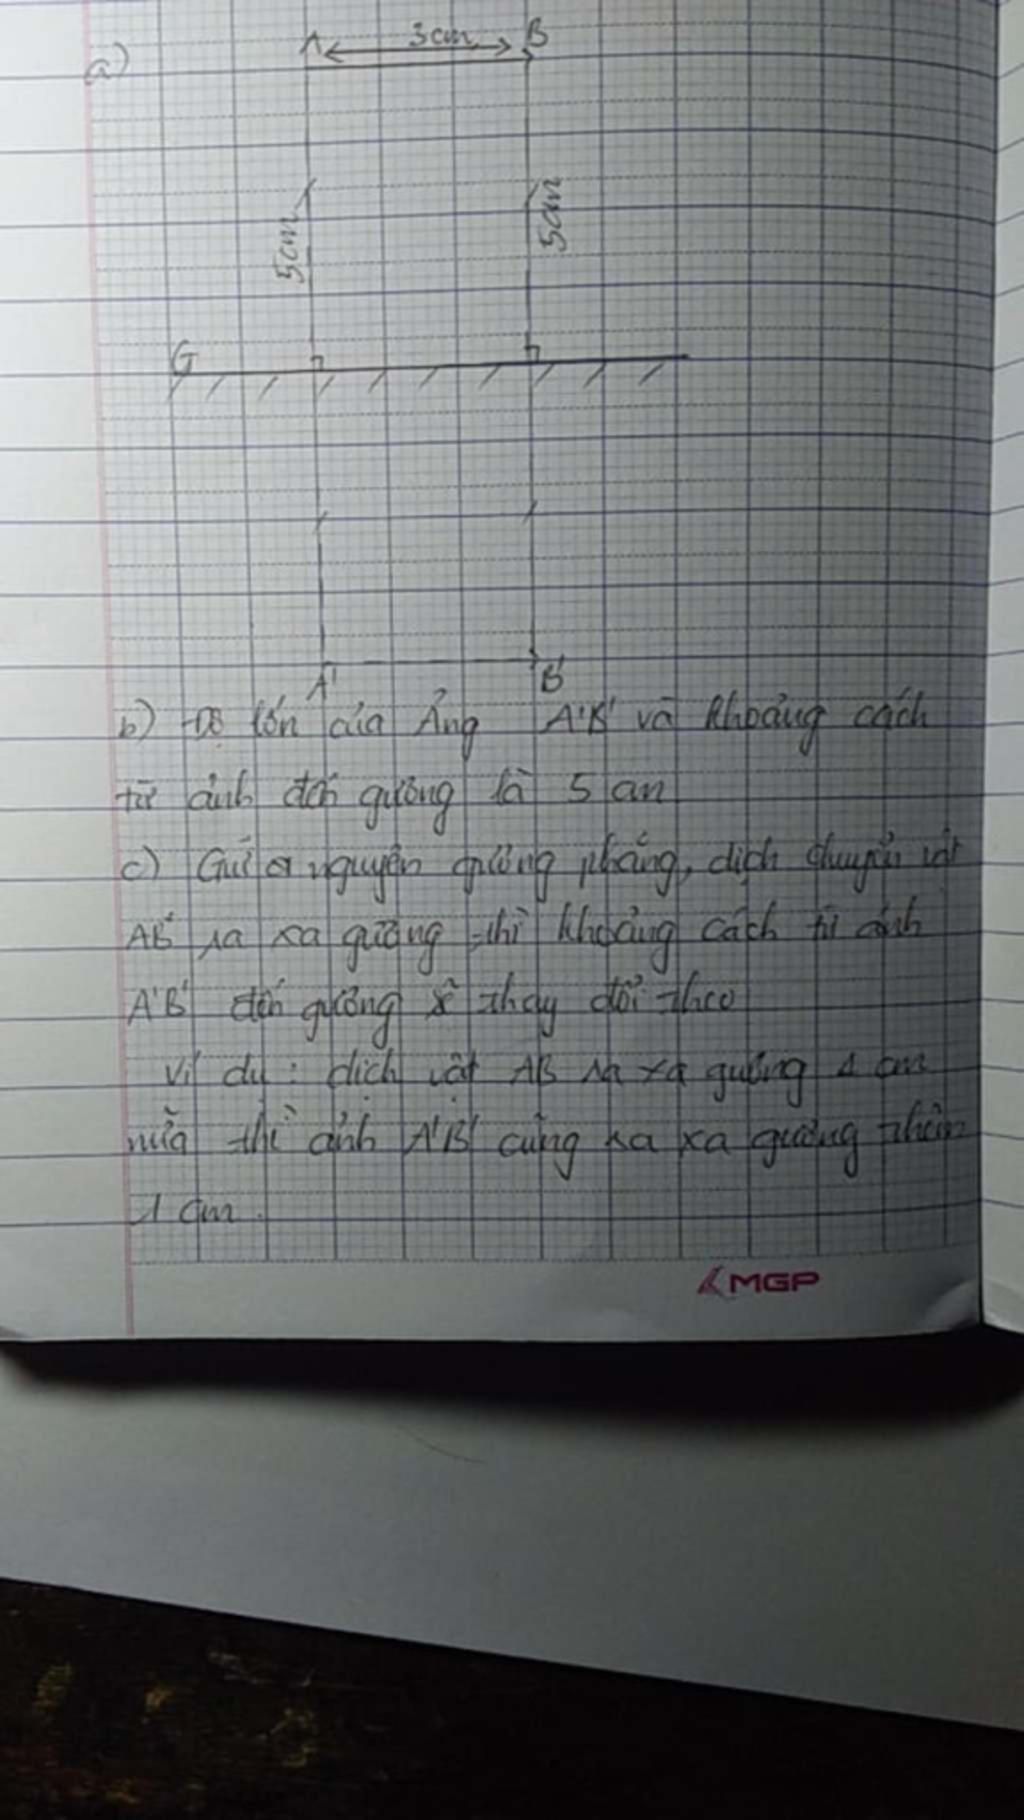 a)
A 3cm B
5cm 5cm
G
A' B'
b) Độ lớn của Ảng A'B' và khoảng cách
từ ảnh đến gương là 5 cm
c) Giữ nguyên gương phẳng, dịch chuyển vật
AB ra xa gương thì khoảng cách từ ảnh
A'B' đến gương sẽ thay đổi theo
Ví dụ: dịch vật AB ra xa gương 1 cm
nữa thì ảnh A'B' cũng ra xa gương thêm
1 cm.
MGP